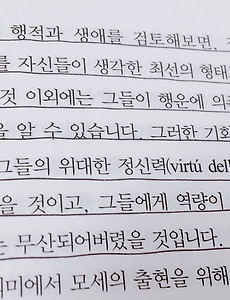 행적과 생애를 검토해보면,
를 자신들이 생각한 최선의 형태
것 이외에는 그들이 행운에 의
을 알 수 있습니다. 그러한 기회
그들의 위대한 정신력(virtú dell'
을 것이고, 그들에게 역량이
는 무산되어버렸을 것입니다.
의미에서 모세의 출현을 위해